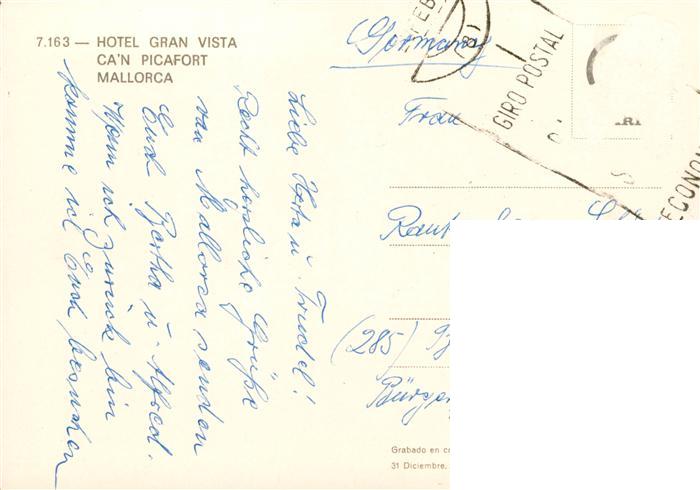 7.163 — HOTEL GRAN VISTA
CA'N PICAFORT
MALLORCA
Liebe Herta u. Trudel!
Recht herzliche Grüße
von Mallorca senden
Euch Bertha u. Alfred.
Wenn ich zurück bin
komme ich Euch besuchen
(Germany)
Frau
(285)
Bürger
GIRO POSTAL
ECONO
Grabado en c
31 Diciembre,